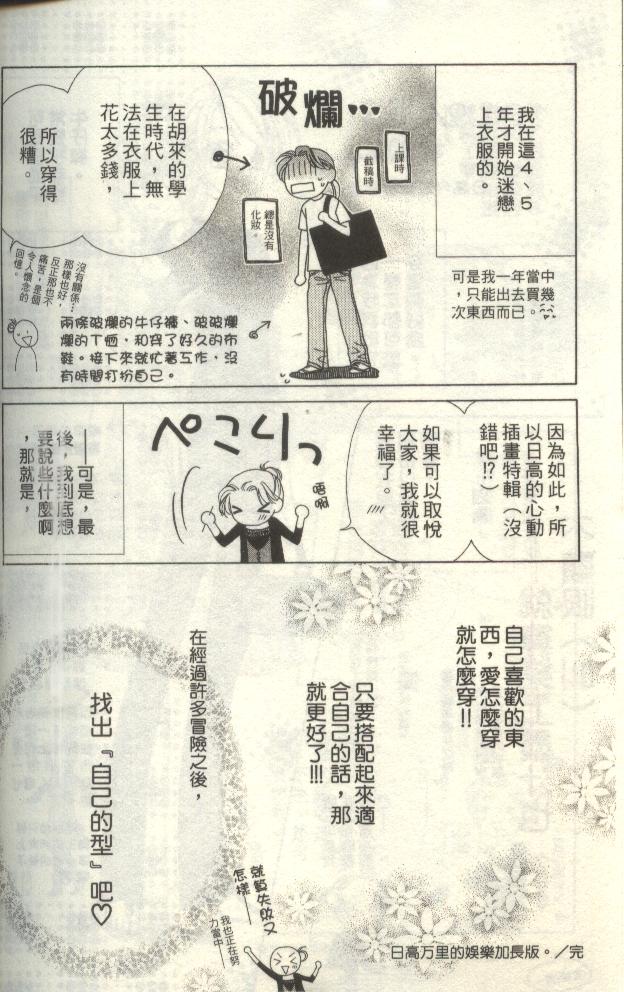 我在這4、5
年才開始迷戀
上衣服的。
可是我一年當中
，只能出去買幾
次東西而已。
破爛…
上課時
截稿時
總是沒有
化妝。
在胡來的學
生時代，無
法在衣服上
花太多錢，
所以穿得
很糟。
沒有關係…
那樣也好，
反正那也不
痛苦，是個
令人懷念的
回憶。
兩條破爛的牛仔褲、破破爛
爛的T恤，和穿了好久的布
鞋。接下來就忙著工作，沒
有時間打扮自己。
因為如此，所
以日高的心動
插畫特輯（沒
錯吧!?）
如果可以取悅
大家，我就很
幸福了。
ぺこりっ
唔啊
——可是，最
後，我到底想
要說些什麼啊
，那就是，
自己喜歡的東
西，愛怎麼穿
就怎麼穿!!
只要搭配起來適
合自己的話，那
就更好了!!!
在經過許多冒險之後，
找出『自己的型』吧♡
就算失敗又
怎樣——
我也正在努
力當中——
日高万里的娛樂加長版。／完